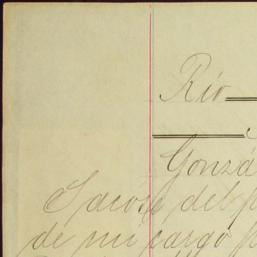 Río
Gonzá
Sacose del p
de mi cargo p